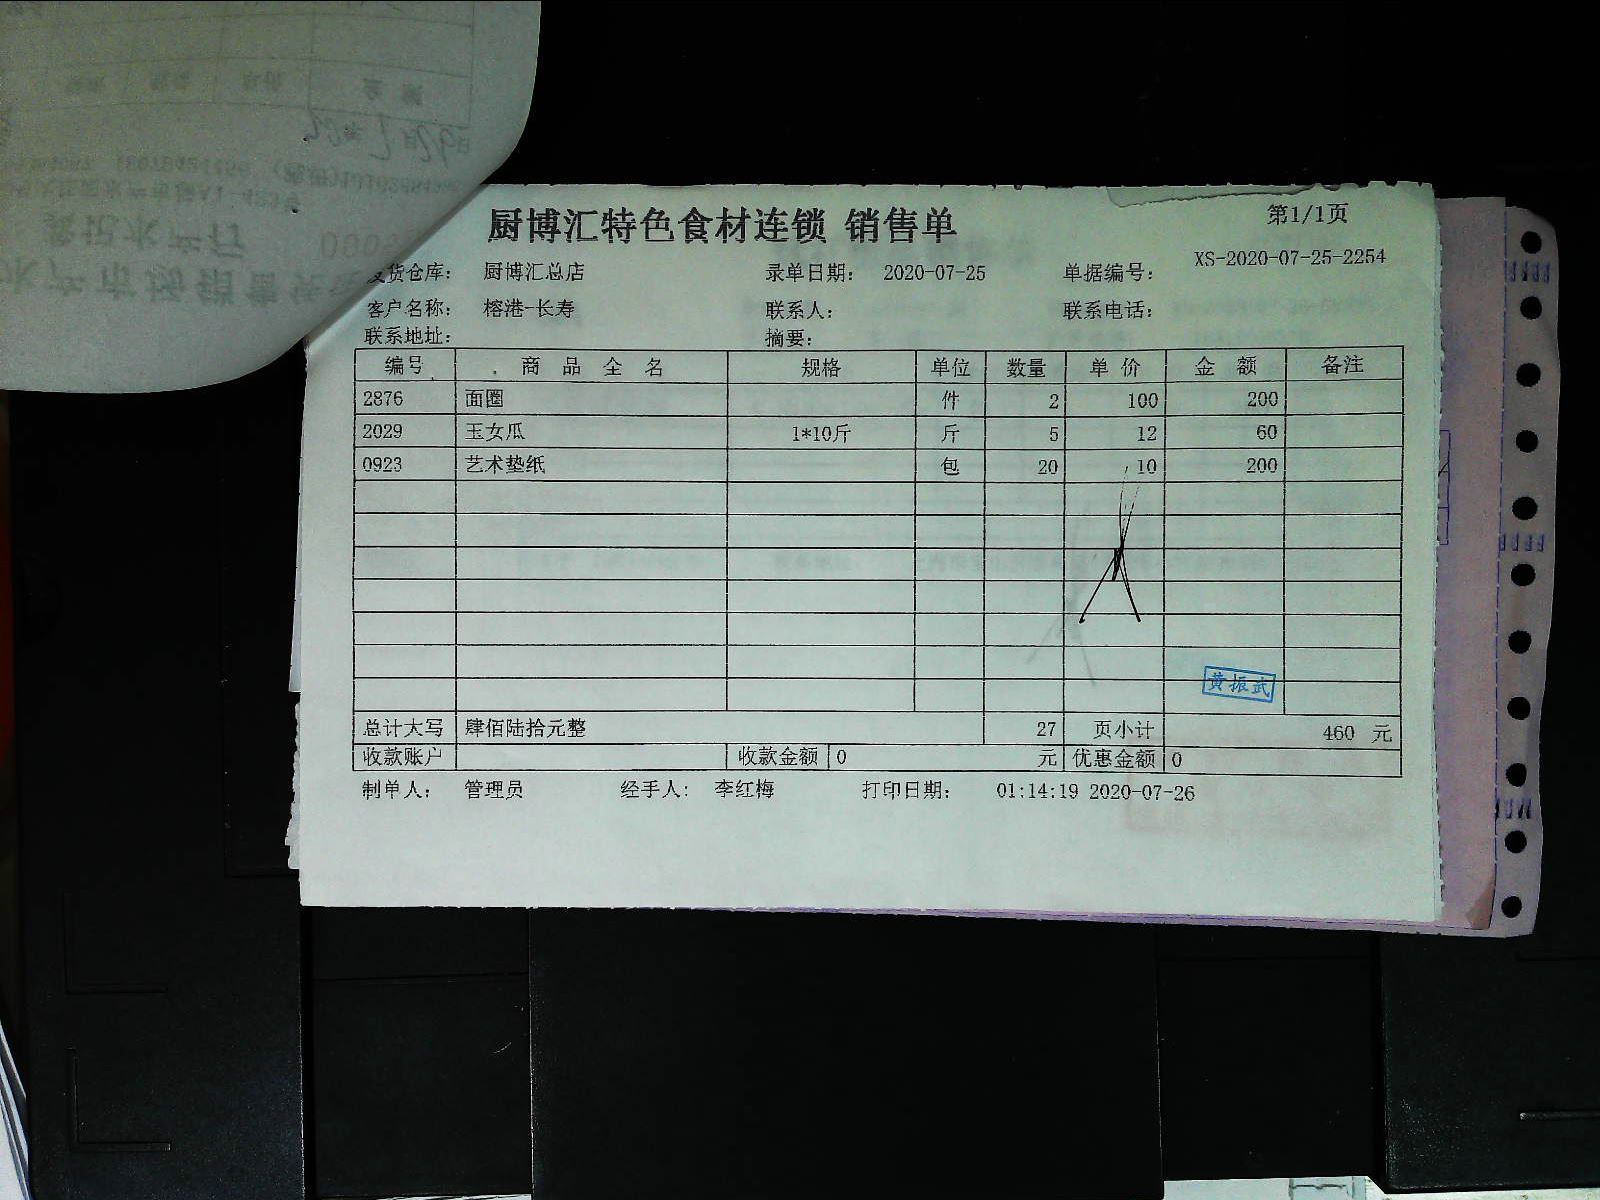 厨博汇特色食材连锁 销售单
第1/1页
货仓库： 厨博汇总店 录单日期： 2020-07-25 单据编号： XS-2020-07-25-2254
客户名称： 榕港-长寿 联系人： 联系电话：
联系地址： 摘要：
编号 商品全名 规格 单位 数量 单价 金额 备注
2876 面圈 件 2 100 200
2029 玉女瓜 1*10斤 斤 5 12 60
0923 艺术垫纸 包 20 10 200
黄振武
总计大写 肆佰陆拾元整 27 页小计 460 元
收款账户 收款金额 0 元 优惠金额 0
制单人： 管理员 经手人： 李红梅 打印日期： 01:14:19 2020-07-26